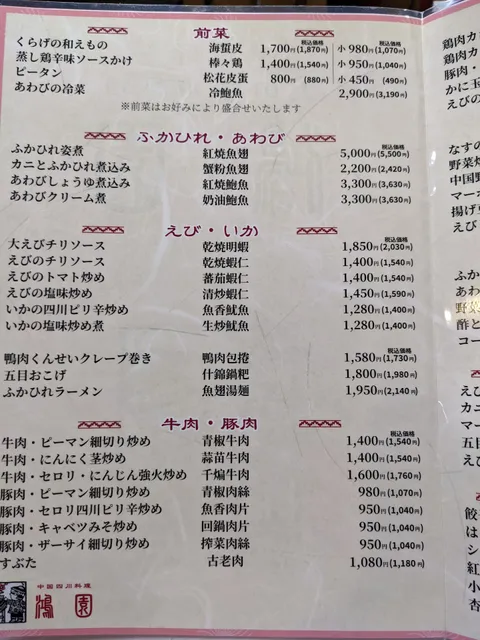 前菜
税込価格
くらげの和えもの 海蜇皮 1,700円(1,870円) 小 980円(1,070円)
蒸し鶏辛味ソースかけ 棒々鶏 1,400円(1,540円) 小 950円(1,040円)
ピータン 松花皮蛋 800円(880円) 小 450円(490円)
あわびの冷菜 冷鮑魚 2,900円(3,190円)
※前菜はお好みにより盛合せいたします
ふかひれ・あわび
税込価格
ふかひれ姿煮 紅焼魚翅 5,000円(5,500円)
カニとふかひれ煮込み 蟹粉魚翅 2,200円(2,420円)
あわびしょうゆ煮込み 紅焼鮑魚 3,300円(3,630円)
あわびクリーム煮 奶油鮑魚 3,300円(3,630円)
えび・いか
税込価格
大えびチリソース 乾焼明蝦 1,850円(2,030円)
えびのチリソース 乾焼蝦仁 1,400円(1,540円)
えびのトマト炒め 蕃茄蝦仁 1,400円(1,540円)
えびの塩味炒め 清炒蝦仁 1,450円(1,590円)
いかの四川ピリ辛炒め 魚香魷魚 1,280円(1,400円)
いかの塩味炒め煮 生炒魷魚 1,280円(1,400円)
税込価格
鴨肉くんせいクレープ巻き 鴨肉包捲 1,580円(1,730円)
五目おこげ 什錦鍋粑 1,800円(1,980円)
ふかひれラーメン 魚翅湯麺 1,950円(2,140円)
牛肉・豚肉
税込価格
牛肉・ピーマン細切り炒め 青椒牛肉 1,400円(1,540円)
牛肉・にんにく茎炒め 蒜苗牛肉 1,400円(1,540円)
牛肉・セロリ・にんじん強火炒め 千煸牛肉 1,600円(1,760円)
豚肉・ピーマン細切り炒め 青椒肉絲 980円(1,070円)
豚肉・セロリ四川ピリ辛炒め 魚香肉片 950円(1,040円)
豚肉・キャベツみそ炒め 回鍋肉片 950円(1,040円)
豚肉・ザーサイ細切り炒め 搾菜肉絲 950円(1,040円)
すぶた 古老肉 1,080円(1,180円)
中国四川料理
鴻園
鶏肉カ
鶏肉カ
豚肉・
かに玉
えびの
なすの
野菜炒
中国野
マーボ
揚げ豆
えび
ふか
あわ
野菜
酢と
コー
えび
カニ
マー
五目
えび
餃
は
シ
紅
小
杏